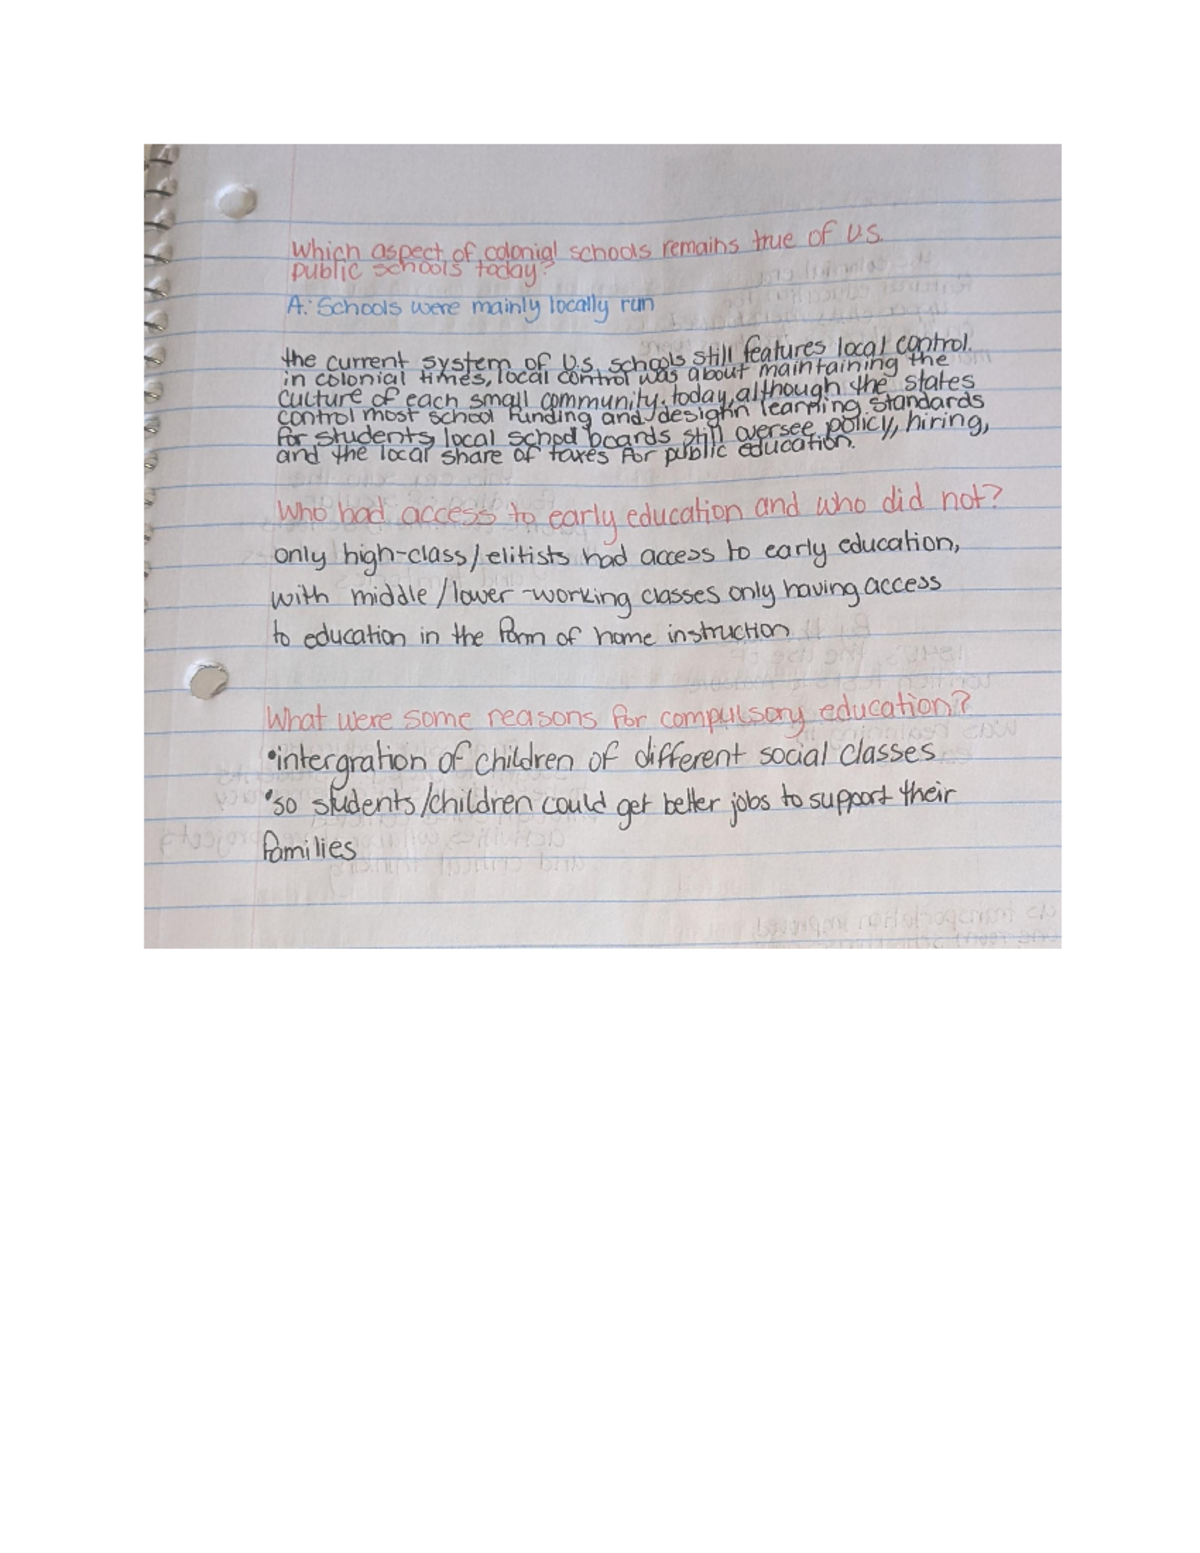 Which aspect of colonial schools remains true of U.S.
public schools today?
A: Schools were mainly locally run
the current system of U.S. schools still features local control.
in colonial times, local control was about maintaining the
culture of each small community. today, although the states
control most school funding and desighn learning standards
for students, local school boards still oversee policy, hiring,
and the local share of taxes for public education.
Who had access to early education and who did not?
only high-class/elitists had access to early education,
with middle/lower-working classes only having access
to education in the form of home instruction
What were some reasons for compulsory education?
•intergration of children of different social classes
•so students/children could get better jobs to support their
families